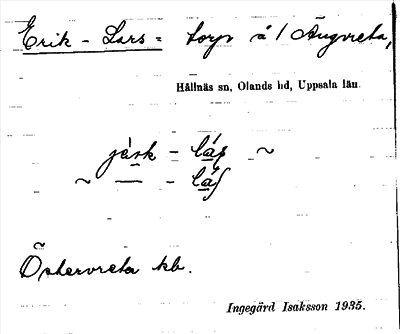 Erik-Lars= torp å/ Ängvreta,
Hällnäs sn, Olands hd, Uppsala län.
~ — -
Östervreta kb.
Ingegärd Isaksson 1935.